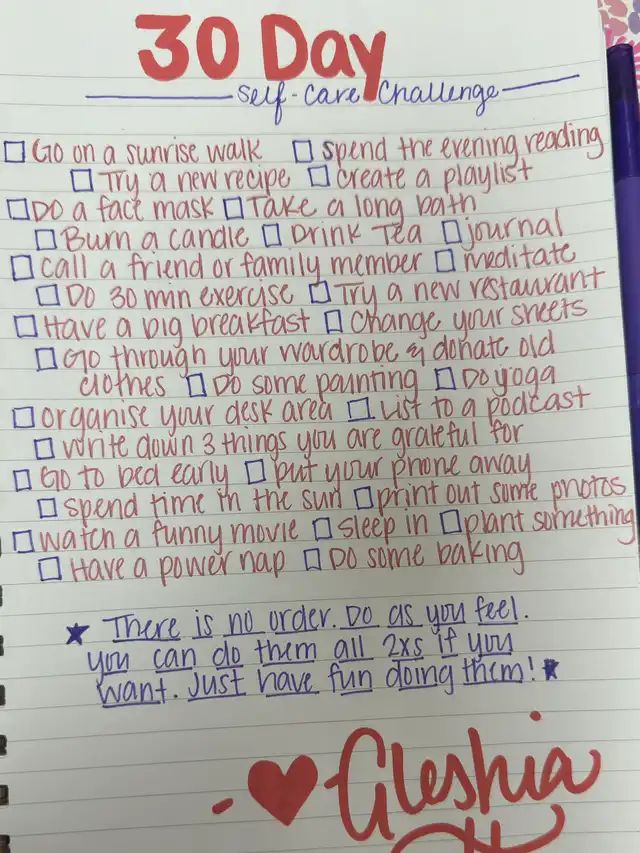 30 Day
Self-Care Challenge
Go on a sunrise walk spend the evening reading
Try a new recipe create a playlist
Do a face mask Take a long bath
Burn a candle Drink Tea journal
call a friend or family member meditate
Do 30 min exercise Try a new restaurant
Have a big breakfast Change your sheets
Go through your wardrobe & donate old
clothes Do some painting Do yoga
organise your desk area List to a podcast
write down 3 things you are grateful for
Go to bed early put your phone away
spend time in the sun print out some photos
watch a funny movie sleep in plant something
Have a power nap Do some baking
★ There is no order. Do as you feel.
you can do them all 2xs if you
want. Just have fun doing them! ★
- ♥ Aleshia